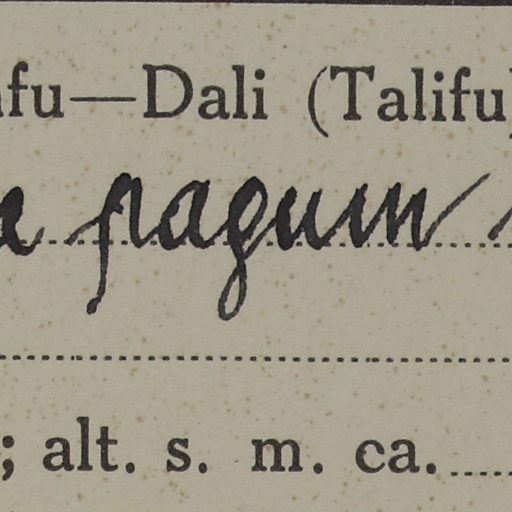 fu—Dali (Talifu)
pagum
; alt. s. m. ca.